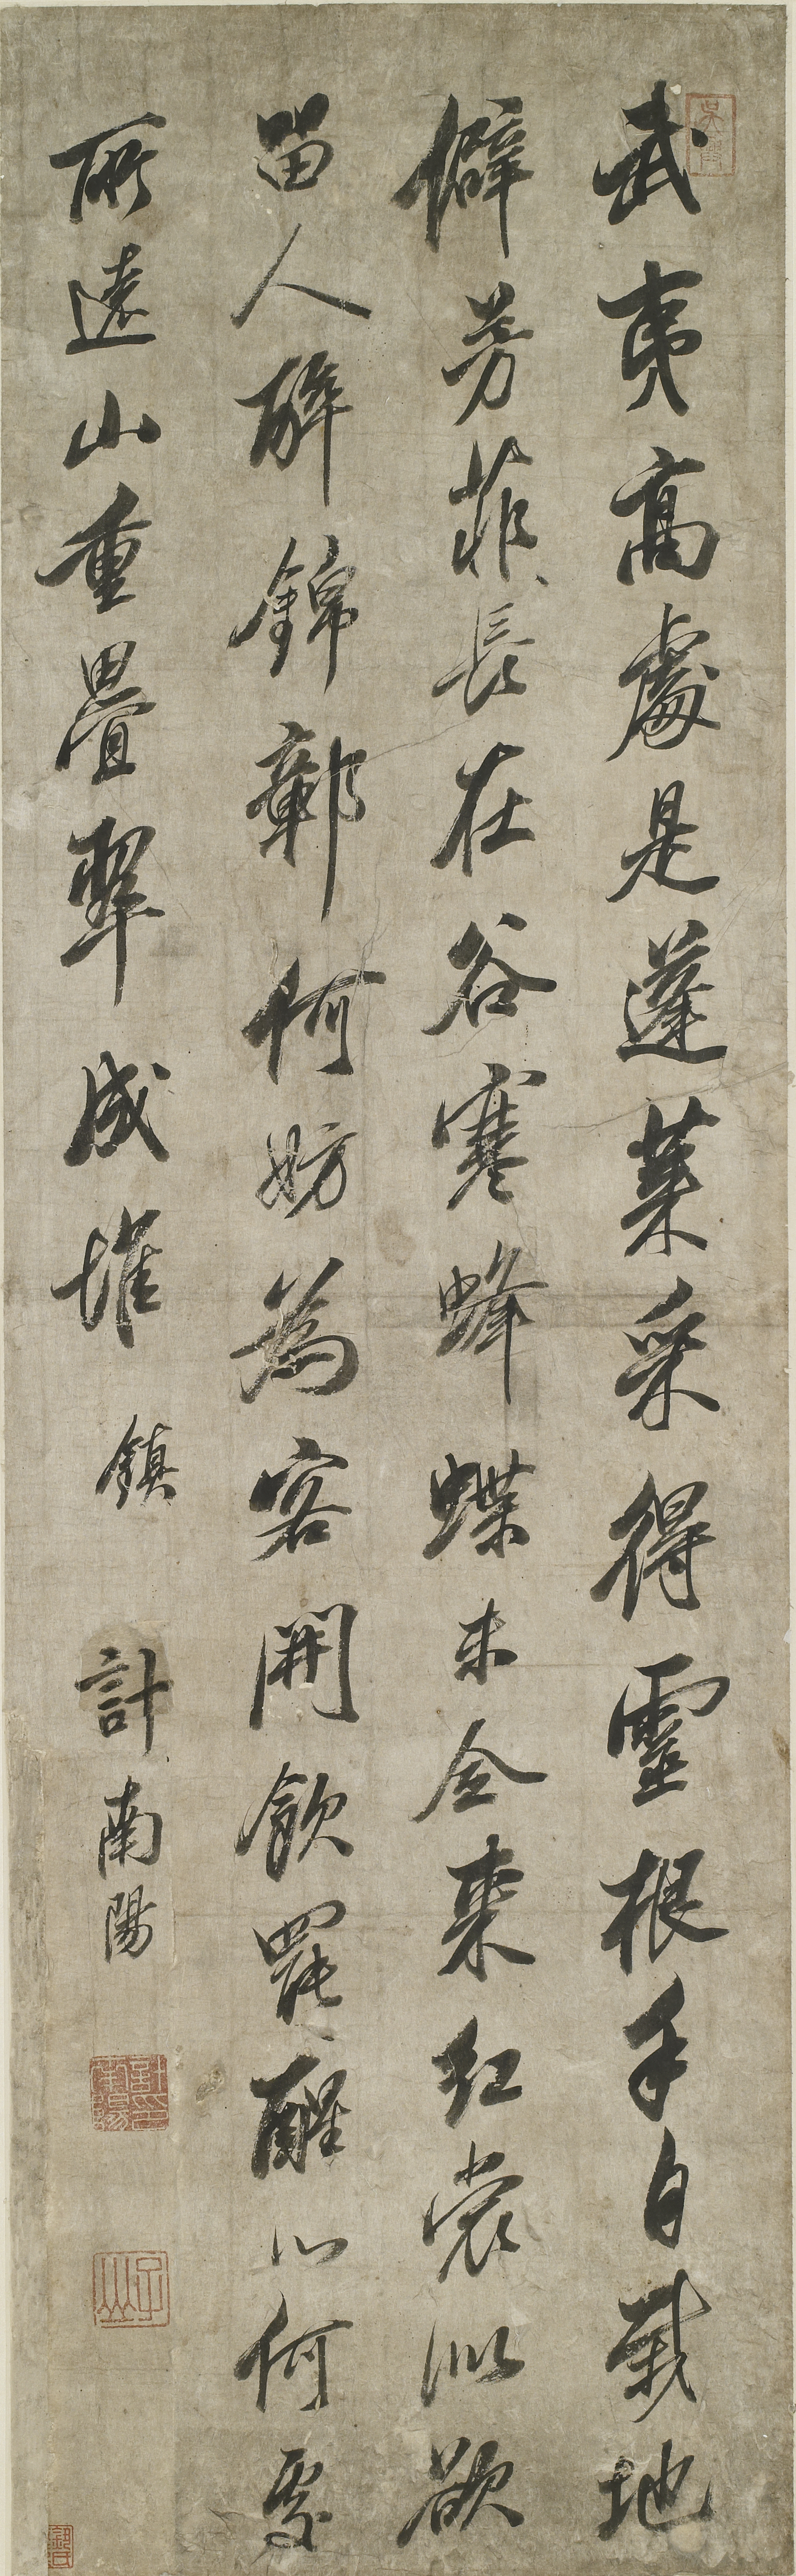 武夷高處是蓬萊采得靈根手自栽地
僻芳菲長在谷寒蜂蝶未全來紅裳似欲
留人醉錦鄣何妨為客開飲罷醒心何處
所遠山重疊翠成堆 鎮 計南陽
計印南陽
子山